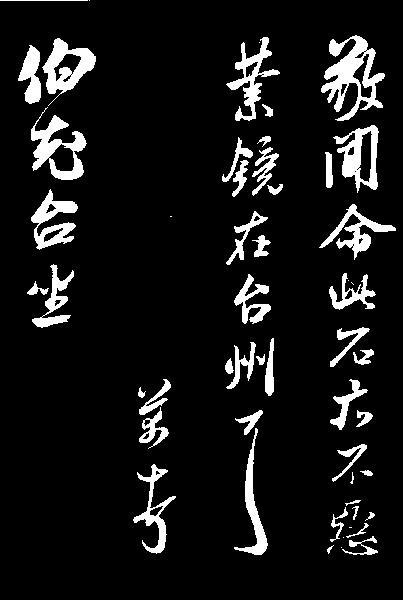 敬聞命此石亦不惡
業鏡在台州
伯充台坐